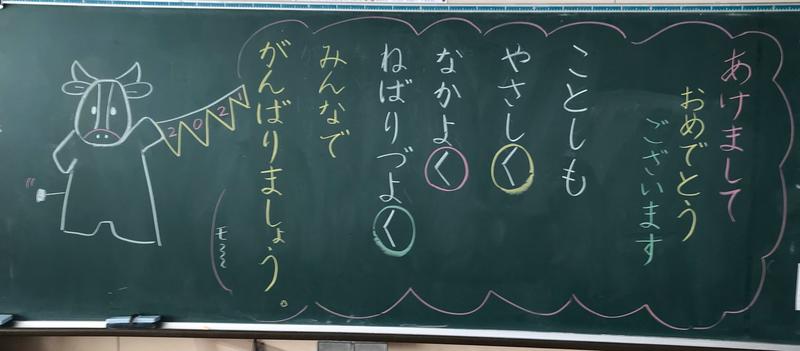 あけまして
おめでとう
ございます
ことしも
やさしく
なかよく
ねばりづよく
みんなで
がんばりましょう。
モ〜〜〜
202